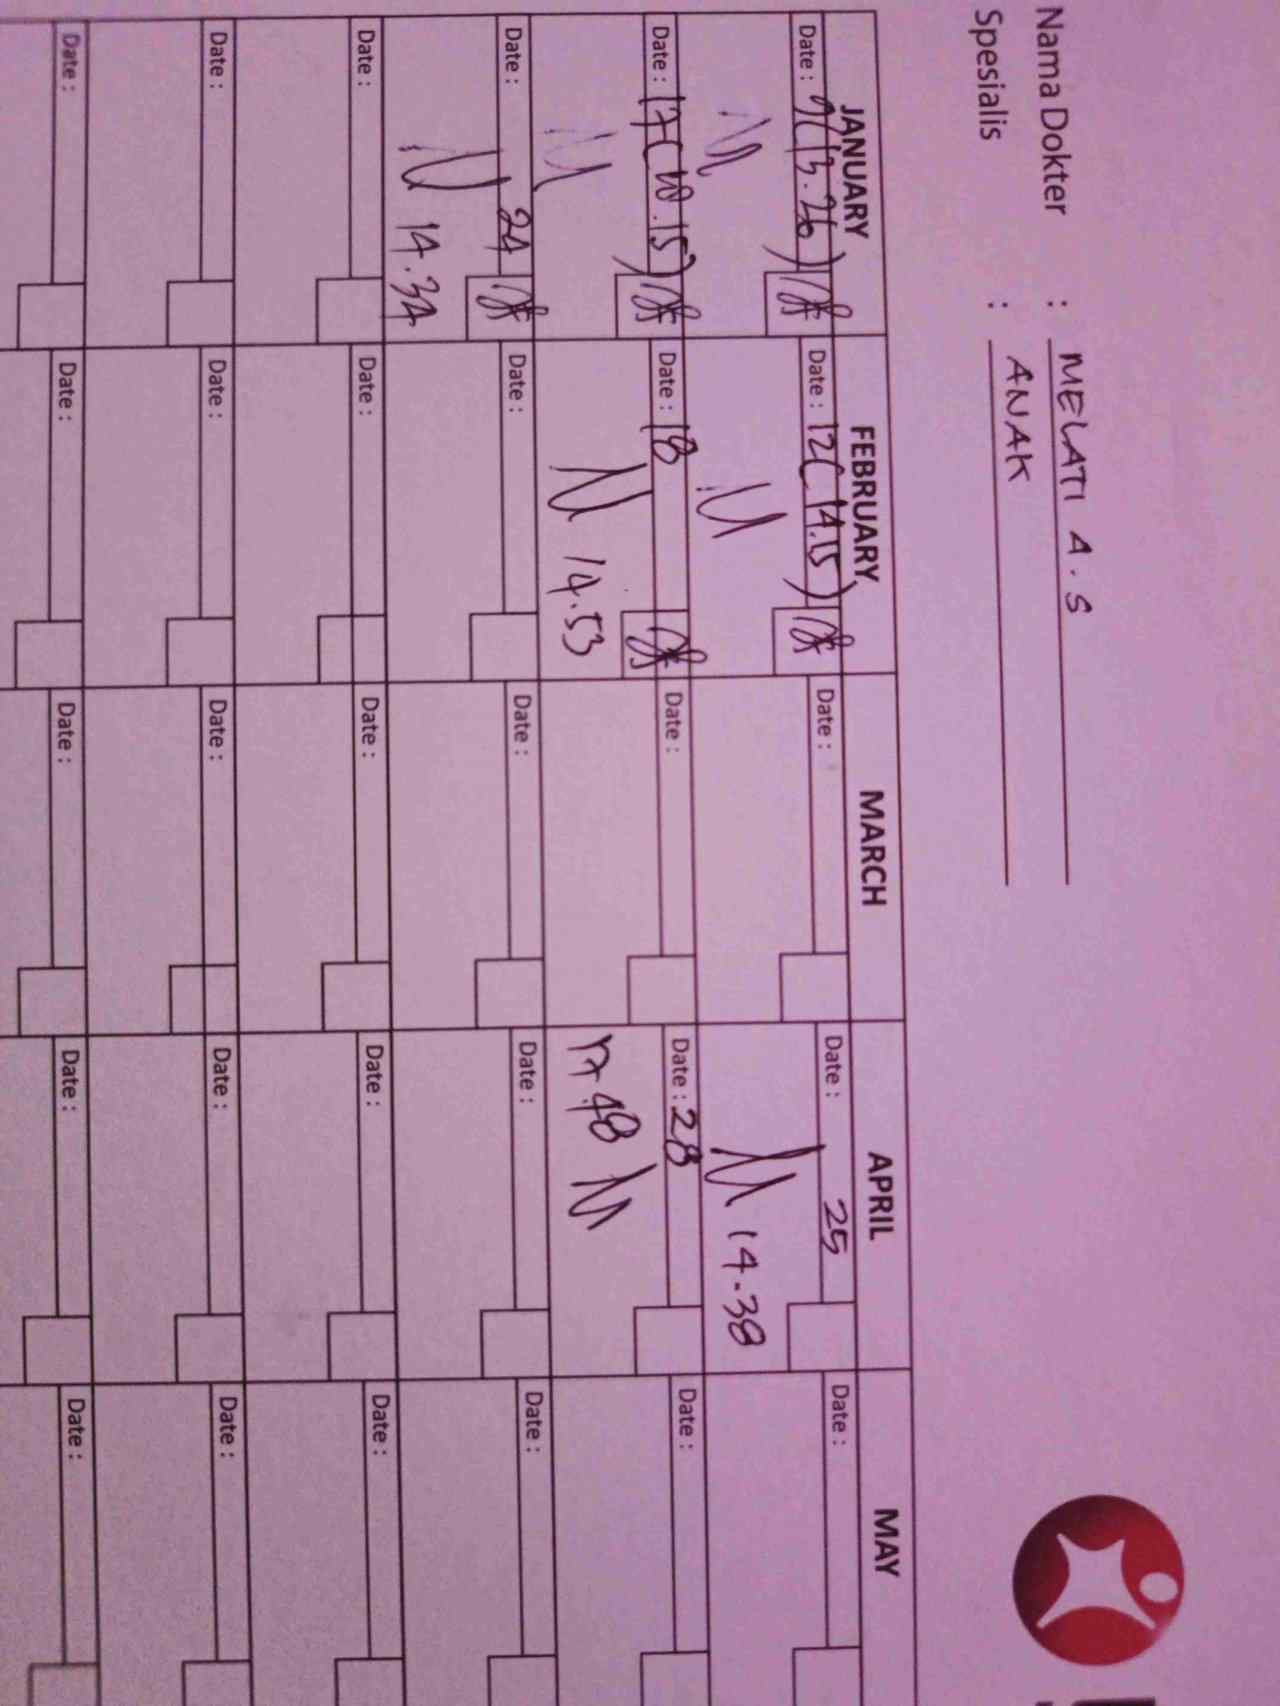 Nama Dokter : MELATI A.S
Spesialis : ANAK
JANUARY FEBRUARY MARCH APRIL MAY
Date : 9(13.26) Date : 12(14.15) Date : Date : 25 Date :
14.38
Date : 17(10.15) Date : 18 Date : Date : 28 Date :
14.53 48
Date : 24 Date : Date : Date : Date :
14.34
Date : Date : Date : Date : Date :
Date : Date : Date : Date : Date :
Date : Date : Date : Date : Date :